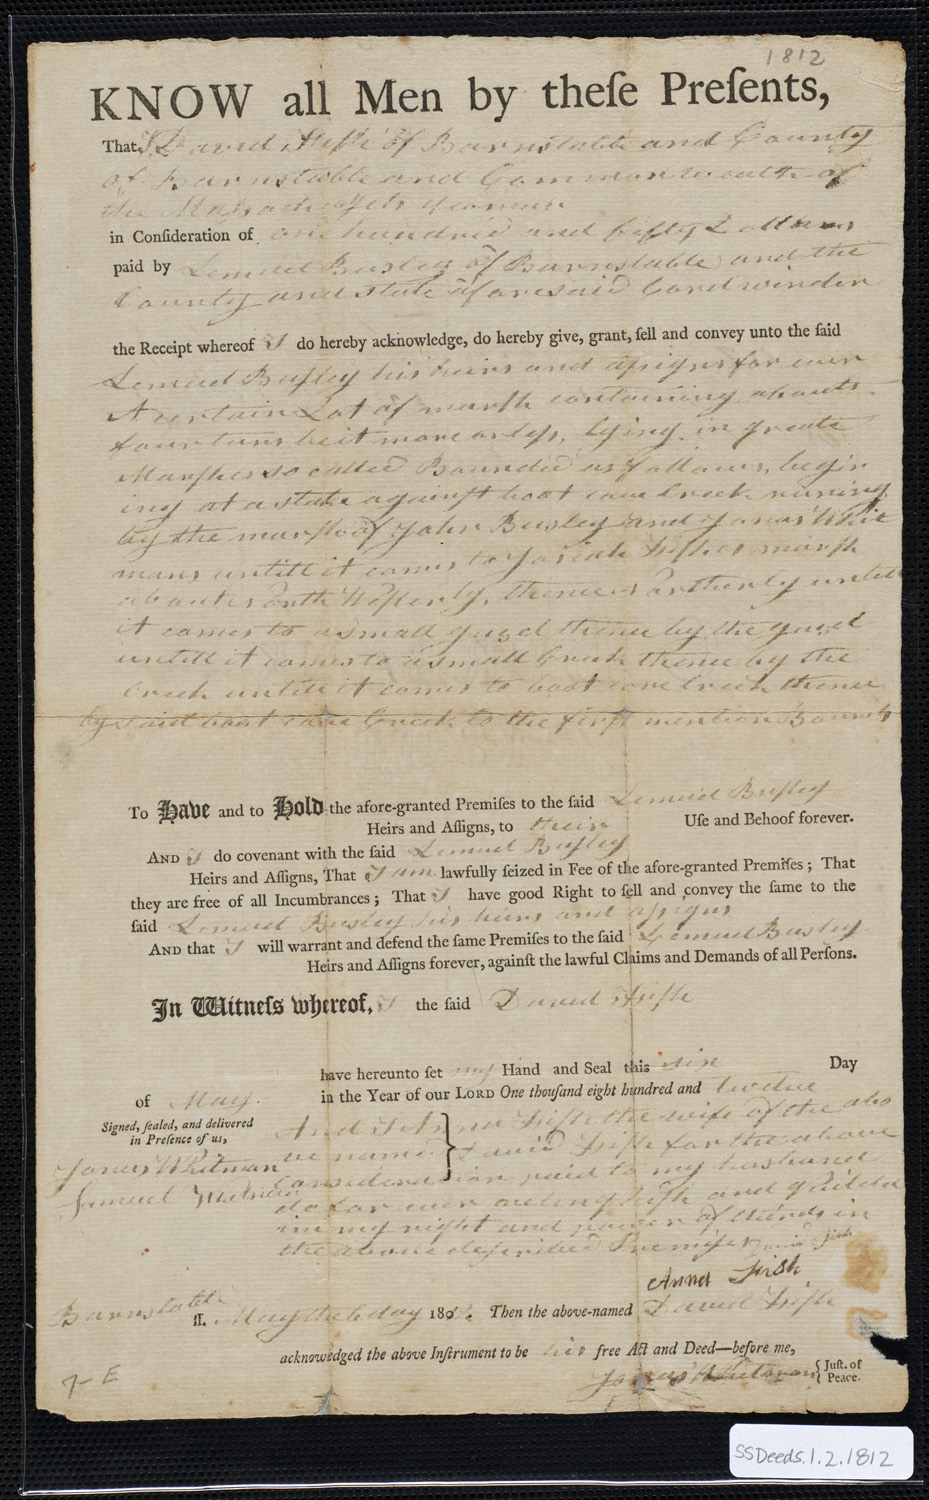 1812
KNOW all Men by theſe Preſents,
That I David Fish of Barnstable and County
of Barnstable and Common wealth of
the Massachusetts yeoman
in Conſideration of one hundred and fifty Dollars
paid by Lemuel Busley of Barnstable and the
County and state aforesaid Cordwinder
the Receipt whereof I do hereby acknowledge, do hereby give, grant, ſell and convey unto the ſaid
Lemuel Busley his heirs and assigns for ever
A certain Lot of marsh containing about
four tuns be it more or less, lying in greate
Marshes so called Bounded as follows, begin
ing at a stake against boat cove Creek runing
by the marsh of John Busley and Jonas Whit
mans untill it comes to Josiah Fishes marsh
about South Westerly, thence Northerly untill
it comes to a small guzel thence by the guzel
untill it comes to a small Creek thence by the
Creek untill it comes to boat cove Creek thence
by said boat cove Creek to the first mention Bounds
To Have and to Hold the afore-granted Premiſes to the ſaid Lemuel Busley
Heirs and Aſſigns, to their Uſe and Behoof forever.
AND I do covenant with the ſaid Lemuel Busley
Heirs and Aſſigns, That I am lawfully ſeized in Fee of the afore-granted Premiſes; That
they are free of all Incumbrances; That I have good Right to ſell and convey the ſame to the
ſaid Lemuel Busley his heirs and assigns
AND that I will warrant and defend the ſame Premiſes to the ſaid Lemuel Busley
Heirs and Aſſigns forever, againſt the lawful Claims and Demands of all Perſons.
In Witneſs whereof, I the ſaid David Fish
have hereunto ſet my Hand and Seal this six Day
of May. in the Year of our LORD One thouſand eight hundred and twelve
Signed, ſealed, and delivered
in Preſence of us,
Jonas Whitman
Lemuel
And I Anna Fish the wife of the abo
ve named David Fish for the above
Consideration paid to my husband
do for ever relinquish and quitclai
im my right and power of thirds in
the above described Premises
David Fish
Anna Fish
Barnstable ſſ. May the 6 day 1812. Then the above-named David Fish
acknowedged the above Inſtrument to be his free Act and Deed—before me,
Jonas Whitman { Juſt. of
Peace.
7-E
SSDeeds.1.2.1812